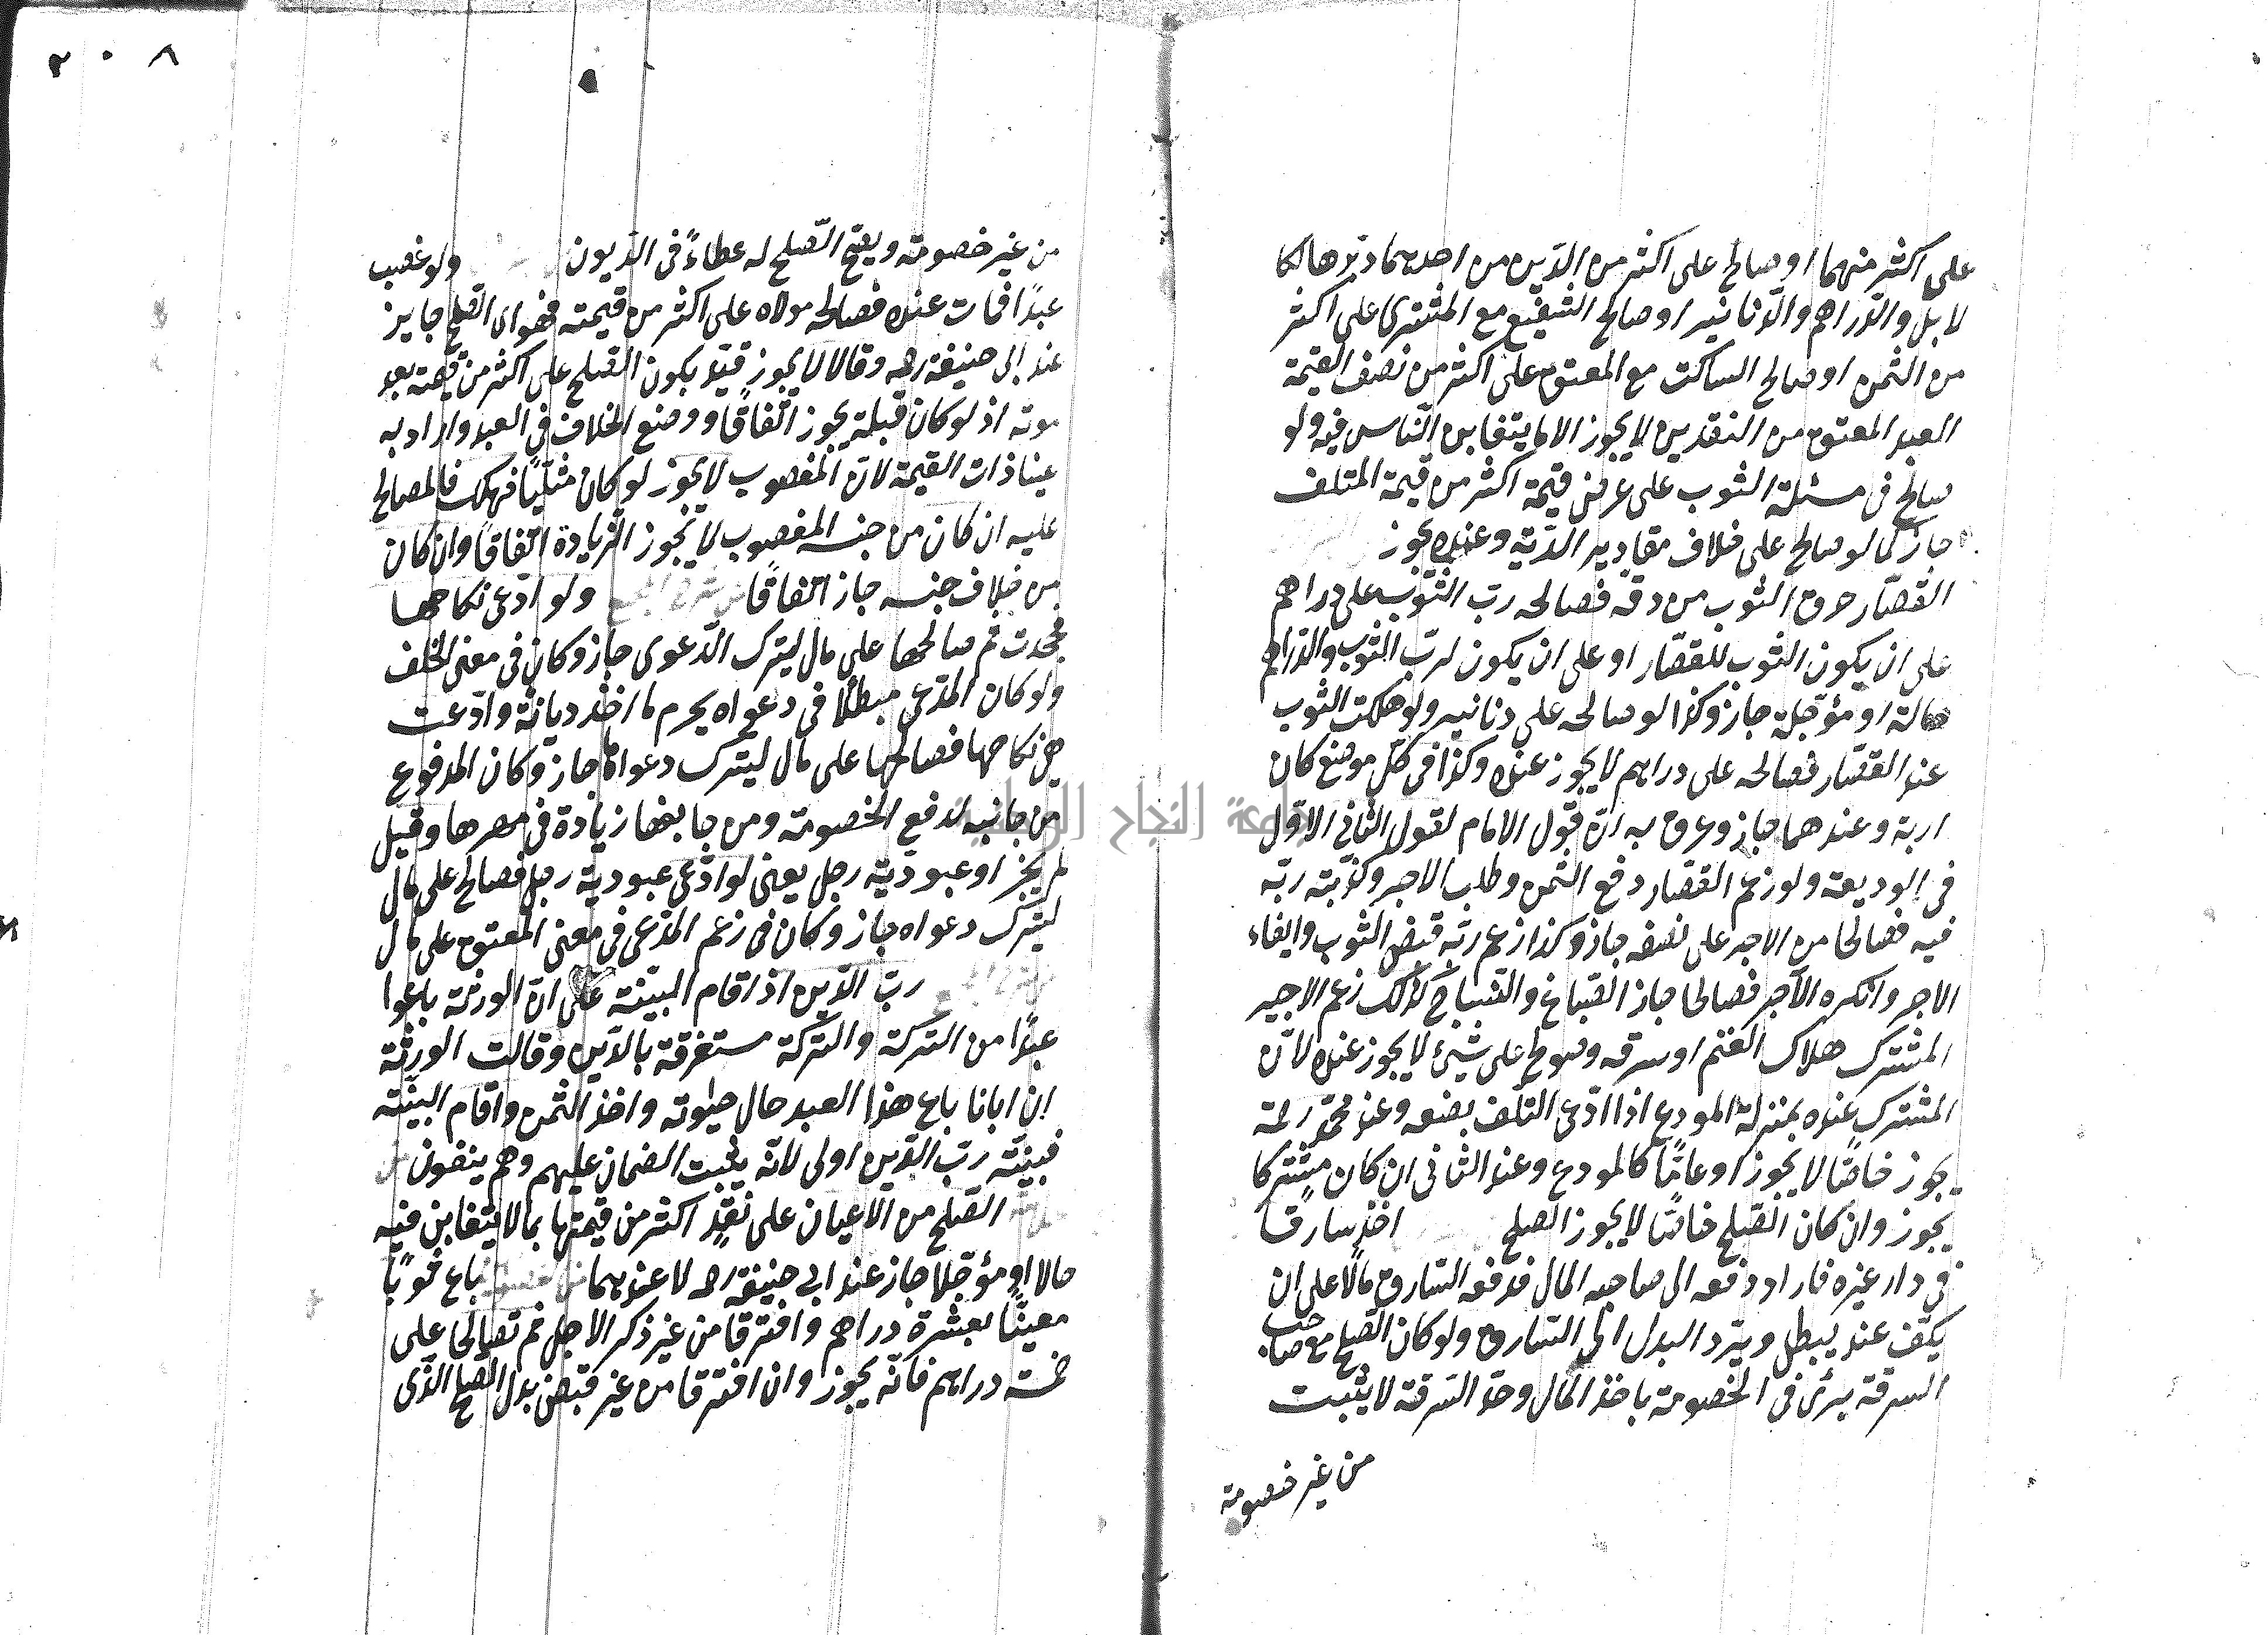 على اكثر منهما او صالح على اكثر من الدّين من احديهما دبّرها لكا
لا بل والدّراهم والدّنانير او صالح الشفيع مع المشترى على اكثر
من الثمن او صالح الساكت مع المعتق على اكثر من نصف القيمة
العبد المعتق من النقدين لا يجوز الا ما يتغابن النّاس فيه ولو
صالح فى مسئلة الثوب على عرض قيمة اكثر من قيمة المتلف
جاز كما لو صالح على خلاف مقادير الدّية وعنده يجوز
القصّار حرق الثوب من دقه فصالحه ربّ الثوب على دراهم
على ان يكون الثوب للقصّار او على ان يكون لربّ الثوب والدراهم
حالة او مؤجّلة جاز وكذا لو صالحه على دنانير ولو هلكت الثوب
عند القصّار فصالحه على دراهم لا يجوز عنده وكذا فى كلّ موضع كان
اربة وعندهما جاز وعرق به انّ قول الامام لقول الثانى الاوّل
فى الوديعة ولو زعم القصّار دفع الثمن وطلب الاجر وكذّبته ربّه
فيه فصالحا من الاجر على نصفه جاز وكذا زعم ربّه قبض الثوب وايفاء
الاجر وانكره الآجر فصالحا جاز الصّباغ والنّسّاج كذلك زعم الاجير
المشترك هلاك الغنم او سرقه وصولح على شيئ لا يجوز عنده لانّ
المشترك عنده بمنزلة المودع اذا ادّعى التلف بصنعه وعند محمّد رحمه
يجوز خاصّا لا يجوز او عامّا كالمودع وعند الثانى ان كان مشتركا
يجوز وان كان الصّلح خاصّا لا يجوز الصلح اخذ سارقا
فى دار غيره فاراد دفعه الى صاحبه المال فدفعه السّارق مالا على ان
يكفّ عنه يبطل ويردّ البدل الى السّارق ولو كان الصّلح مع صاحب
السرقة برئ فى الخصومة باخذ المال وحدّ السّرقة لا يثبت
من غير خصومة
٢٠٨
من غير خصومة ويصحّ الصّلح له عطاءً فى الدّيون ولو غصب
عبدًا فمات عنده فصالحه مولاه على اكثر من قيمته فهو اى الصّلح جايز
عند ابى حنيفة رحمه وقالا لا يجوز قيّد بكون الصّلح على اكثر من قيمته بعد
موته اذ لو كان قبله يجوز اتّفاقًا ووضع الخلاف فى العبد واراد به
عينا ذات القيمة لانّ المغصوب لا يجوز لو كان مثليًا فهلك فالمصالح
عليه ان كان من جنس المغصوب لا يجوز الزّيادة اتّفاقًا وان كان
من خلاف جنسه جاز اتّفاقًا ولو ادّعى نكاحها
فجحدت ثم صالحها على مال ليترك الدّعوى جاز وكان فى معنى الخلف
ولو كان المدّعى مبطلًا فى دعواه يحرم ما اخذ ديانة وادّعت
هى نكاحها فصالحها على مال ليترك دعواها جاز وكان المدفوع
من جانبه لدفع الخصومة ومن جانبها زيادة فى مهرها وقيل
لم يجز او عبوديّة رجل يعنى لو ادّعى عبودية رجل فصالح على مال
ليترك دعواه جاز وكان فى زعم المدّعى فى معنى المعتوق على مال
ربّ الدّين اذا اقام البيّنة على انّ الورثة باعوا
عبدًا من التركة والتركة مستغرقة بالدّين وقالت الورثة
ان ابانا باع هذا العبد حال حيوته واخذ الثمن واقام البيّنة
فبيّنة ربّ الدّين اولى لانّه يثبت الضمان عليهم وهم ينفون
الصّلح من الاعيان على نقد اكثر من قيمتها بما لا يتغابن فيه
حالا او مؤجّلا جاز عند ابى حنيفة رحمه لا عندهما باع ثوبًا
معينًا بعشرة دراهم وافترقا من غير ذكر الاجل ثم تصالحا على
خمسة دراهم فانّه يجوز وان افترقا من غير قبض بدل الصّلح الذّى
جامعة النجاح الوطنية